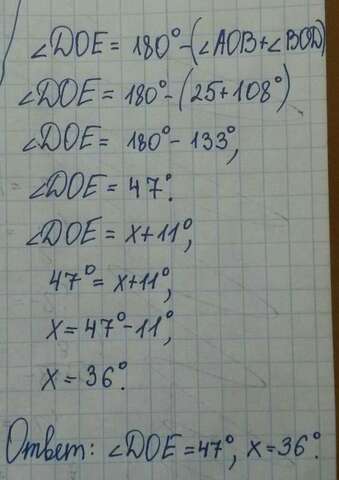 ∠DOE = 180° - (∠AOB + ∠BOD)
∠DOE = 180° - (25 + 108°)
∠DOE = 180° - 133°,
∠DOE = 47°.
∠DOE = x + 11°,
47° = x + 11°,
x = 47° - 11°,
x = 36°.
Ответ: ∠DOE = 47°, x = 36°.